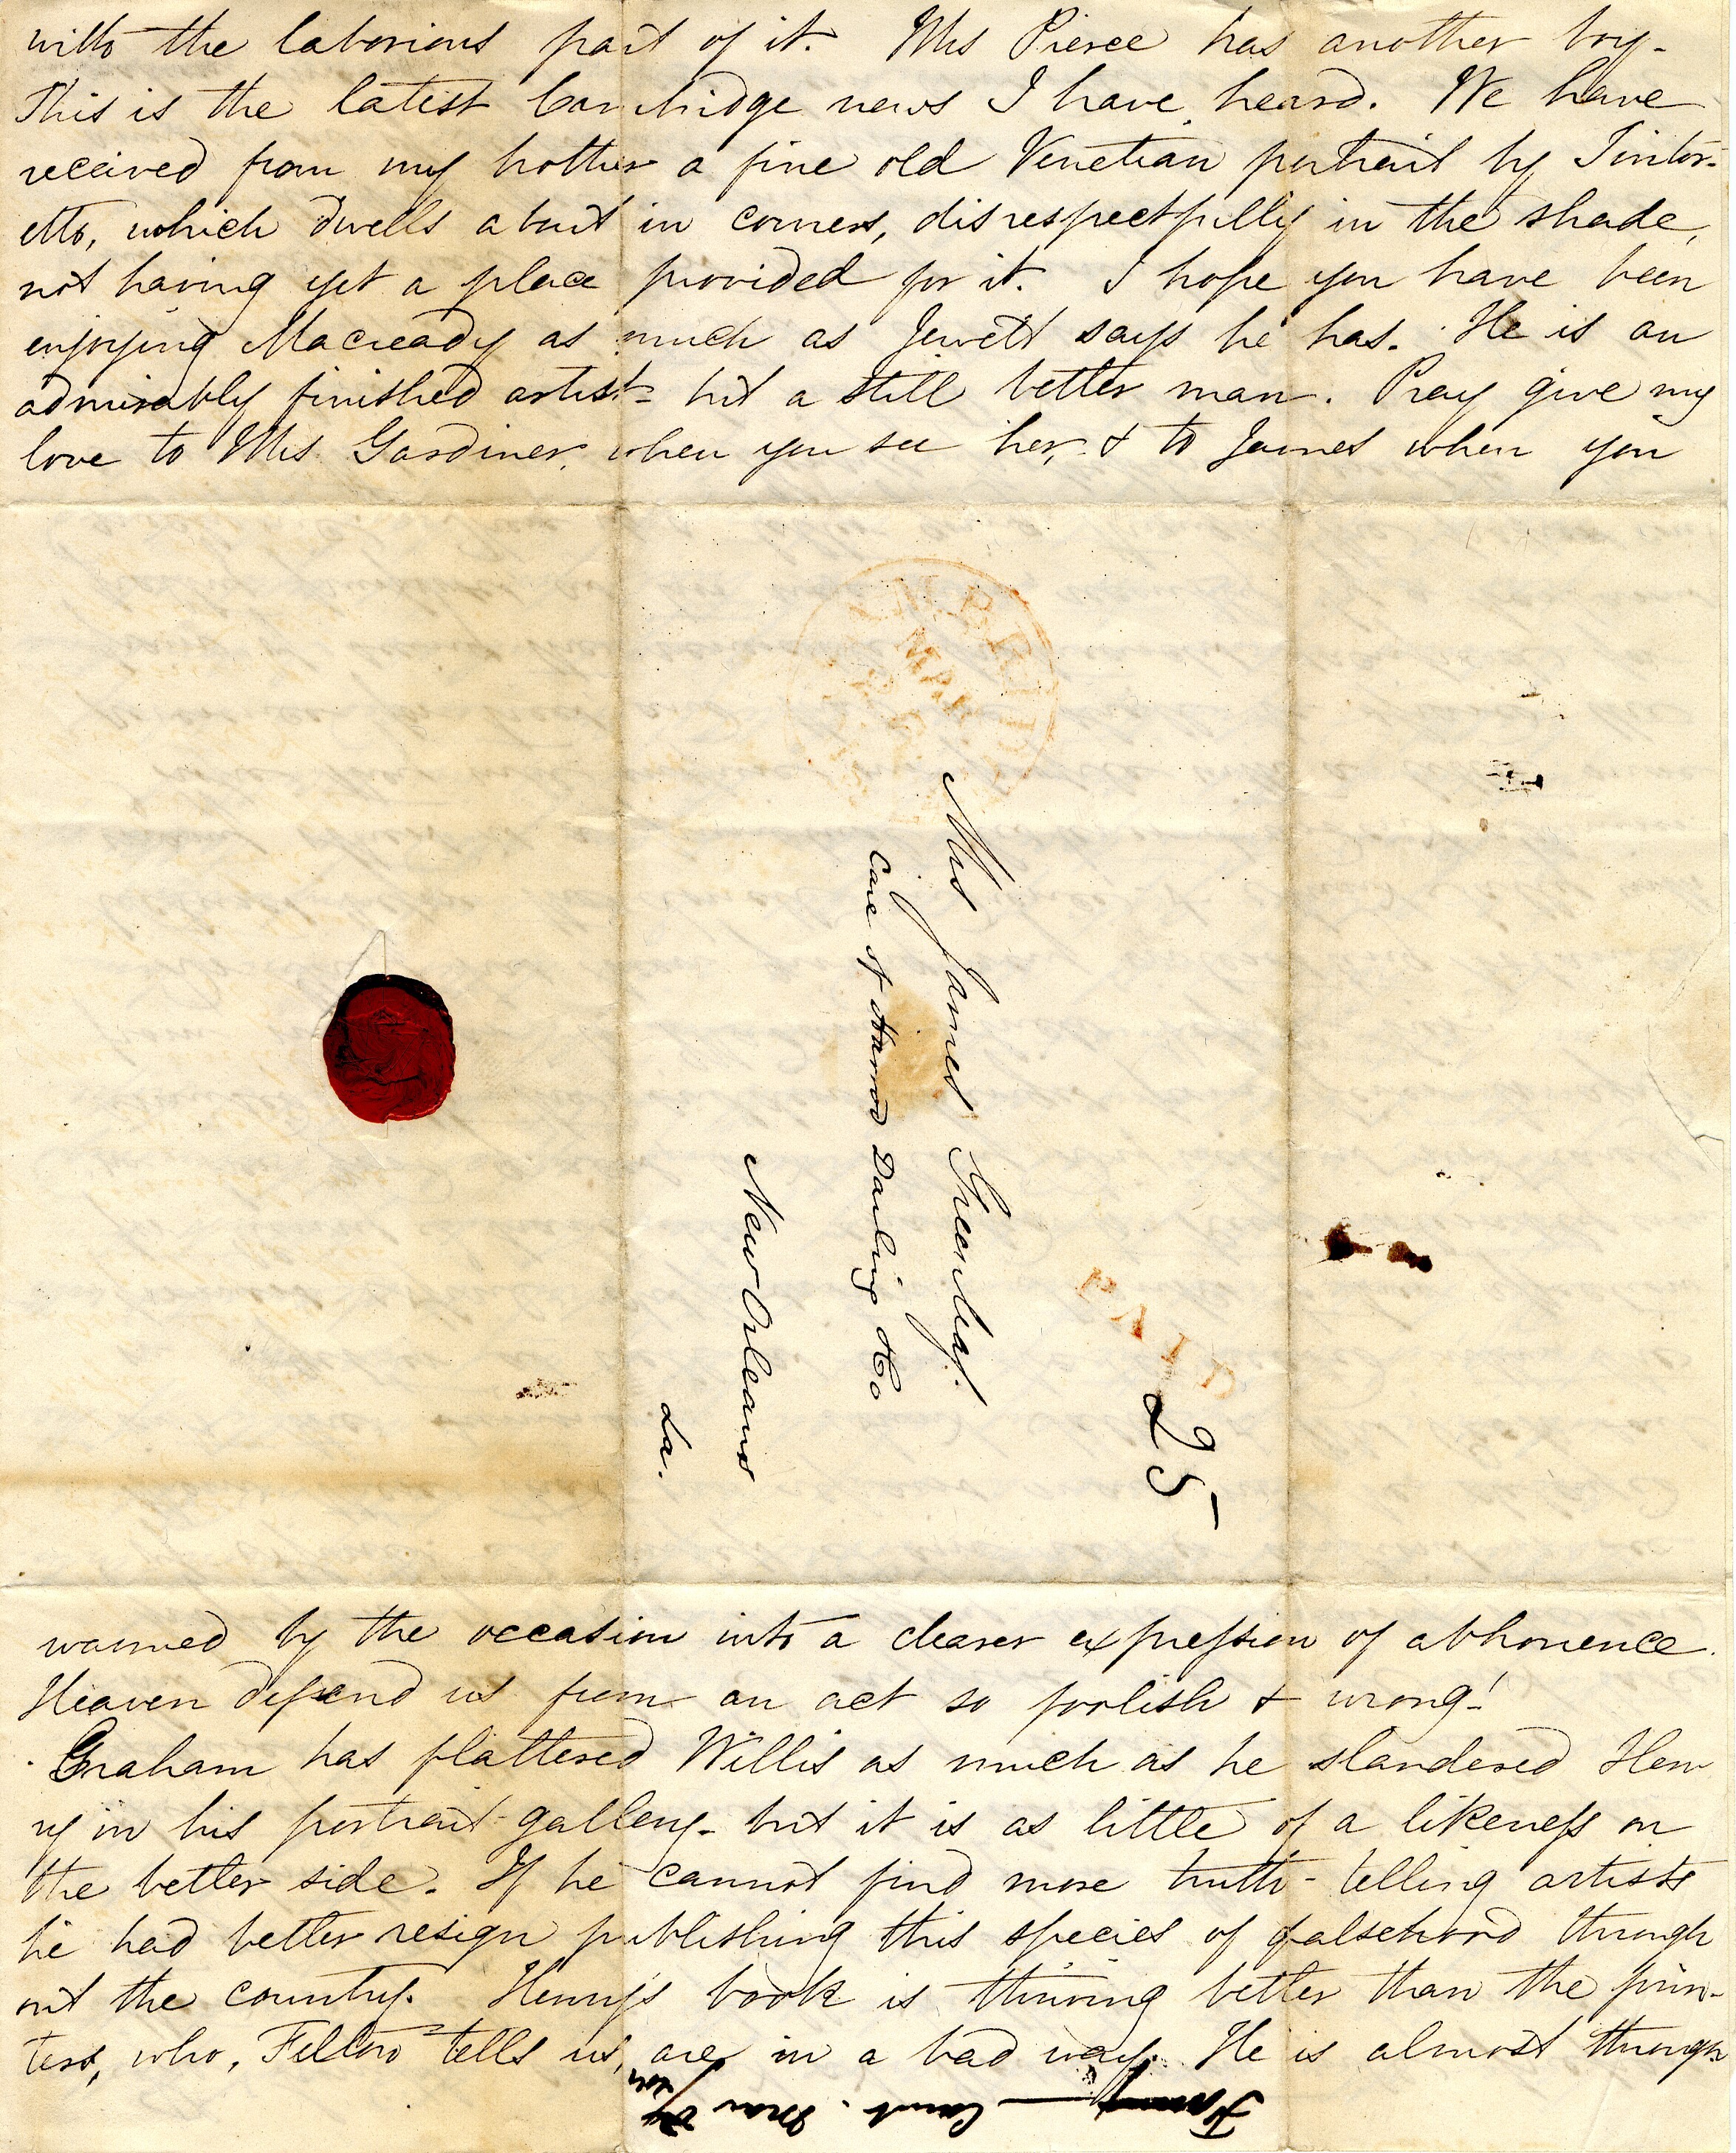 with the laborious part of it. Mrs Pierce has another boy-
This is the latest Cambridge news I have heard. We have
received from my brother a fine old Venetian portrait by Tintor-
etto, which dwells about in corners, disrespectfully in the shade,
not having yet a place provided for it. I hope you have been
enjoying Macready as much as Jewett says he has. He is an
admirably finished artist - but a still better man. Pray give my
love to Mrs Gardiner, when you see her, & to James when you
CAMBRIDGE
MAR
Mrs James Greenleaf.
Care of Harrod Darling & Co
New Orleans
La.
PAID
25
warmed by the occasion into a clearer expression of abhorrence.
Heaven defend us from an act so foolish & wrong!
Graham has flattered Willis as much as he slandered Hen
ry in his portrait-gallery - but it is as little of a likeness on
the better side. If he cannot find more truth-telling artists
he had better resign publishing this species of falsehood through
out the country. Henry's book is thriving better than the prin-
ters, who, Felton tells us, are in a bad way. He is almost through
Fanny — Camb. Mar